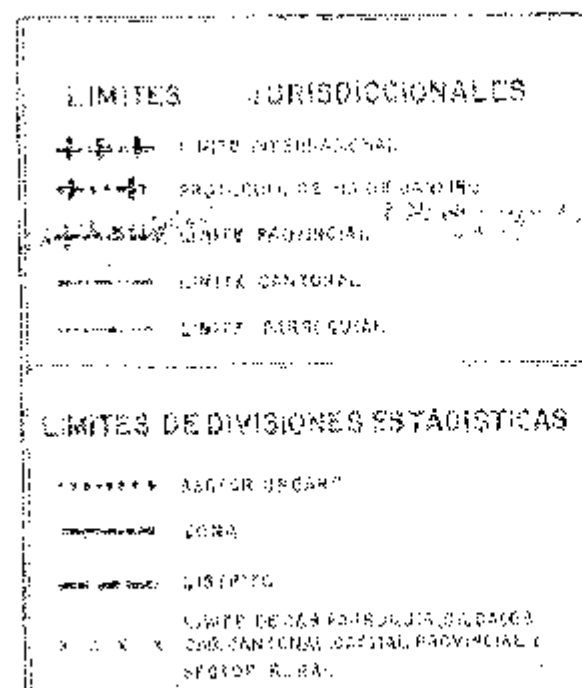 LIMITES JURISDICCIONALES
LIMITE INTERNACIONAL
PROTOCOLO DE RIO DE JANEIRO
LIMITE PROVINCIAL
LIMITE CANTONAL
LIMITE PARROQUIAL
LIMITES DE DIVISIONES ESTADISTICAS
SECTOR URBANO
ZONA
LIMITE DE CAB PARROQUIAL
CAB. CANTONAL CAPITAL PROVINCIAL Y
SECTOR RURAL